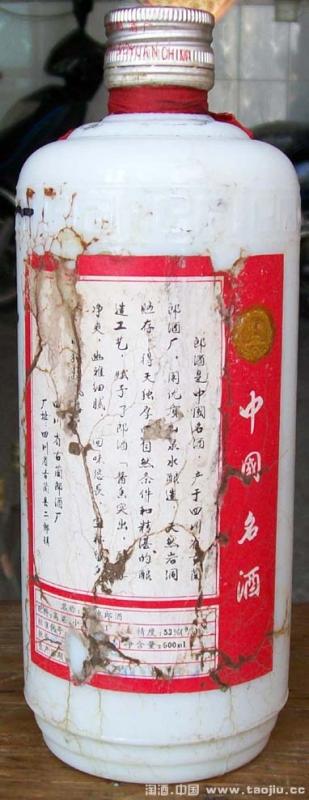 YUAN CHINA
中國名酒
郎酒是中國名酒,产于四川省古蔺
郎酒厂,用优
泉水酿造,天然岩洞
贮存,得天独厚
自然条件和精湛的酿
造工艺,赋予了郎酒「酱香突出,
净爽,幽雅细腻,回味悠长
四川省古蔺郎酒厂
厂址:四川省古蔺县二郎镇
名称:
郎酒
酒精度:53%(
净含量:500ml
淘酒.中国 www.taojiu.cc